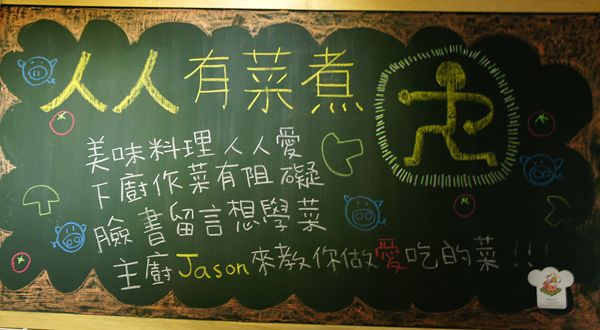 人人有菜煮
美味料理人人愛
下廚作菜有阻礙
臉書留言想學菜
主廚Jason來教你做愛吃的菜!!!